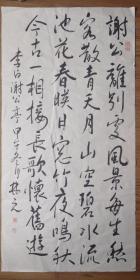 謝公離別處風景每生愁
客散青天月山空碧水流
池花春暎日窗竹夜鳴秋
今古一相接長歌懷舊遊
李白謝公亭甲午冬月